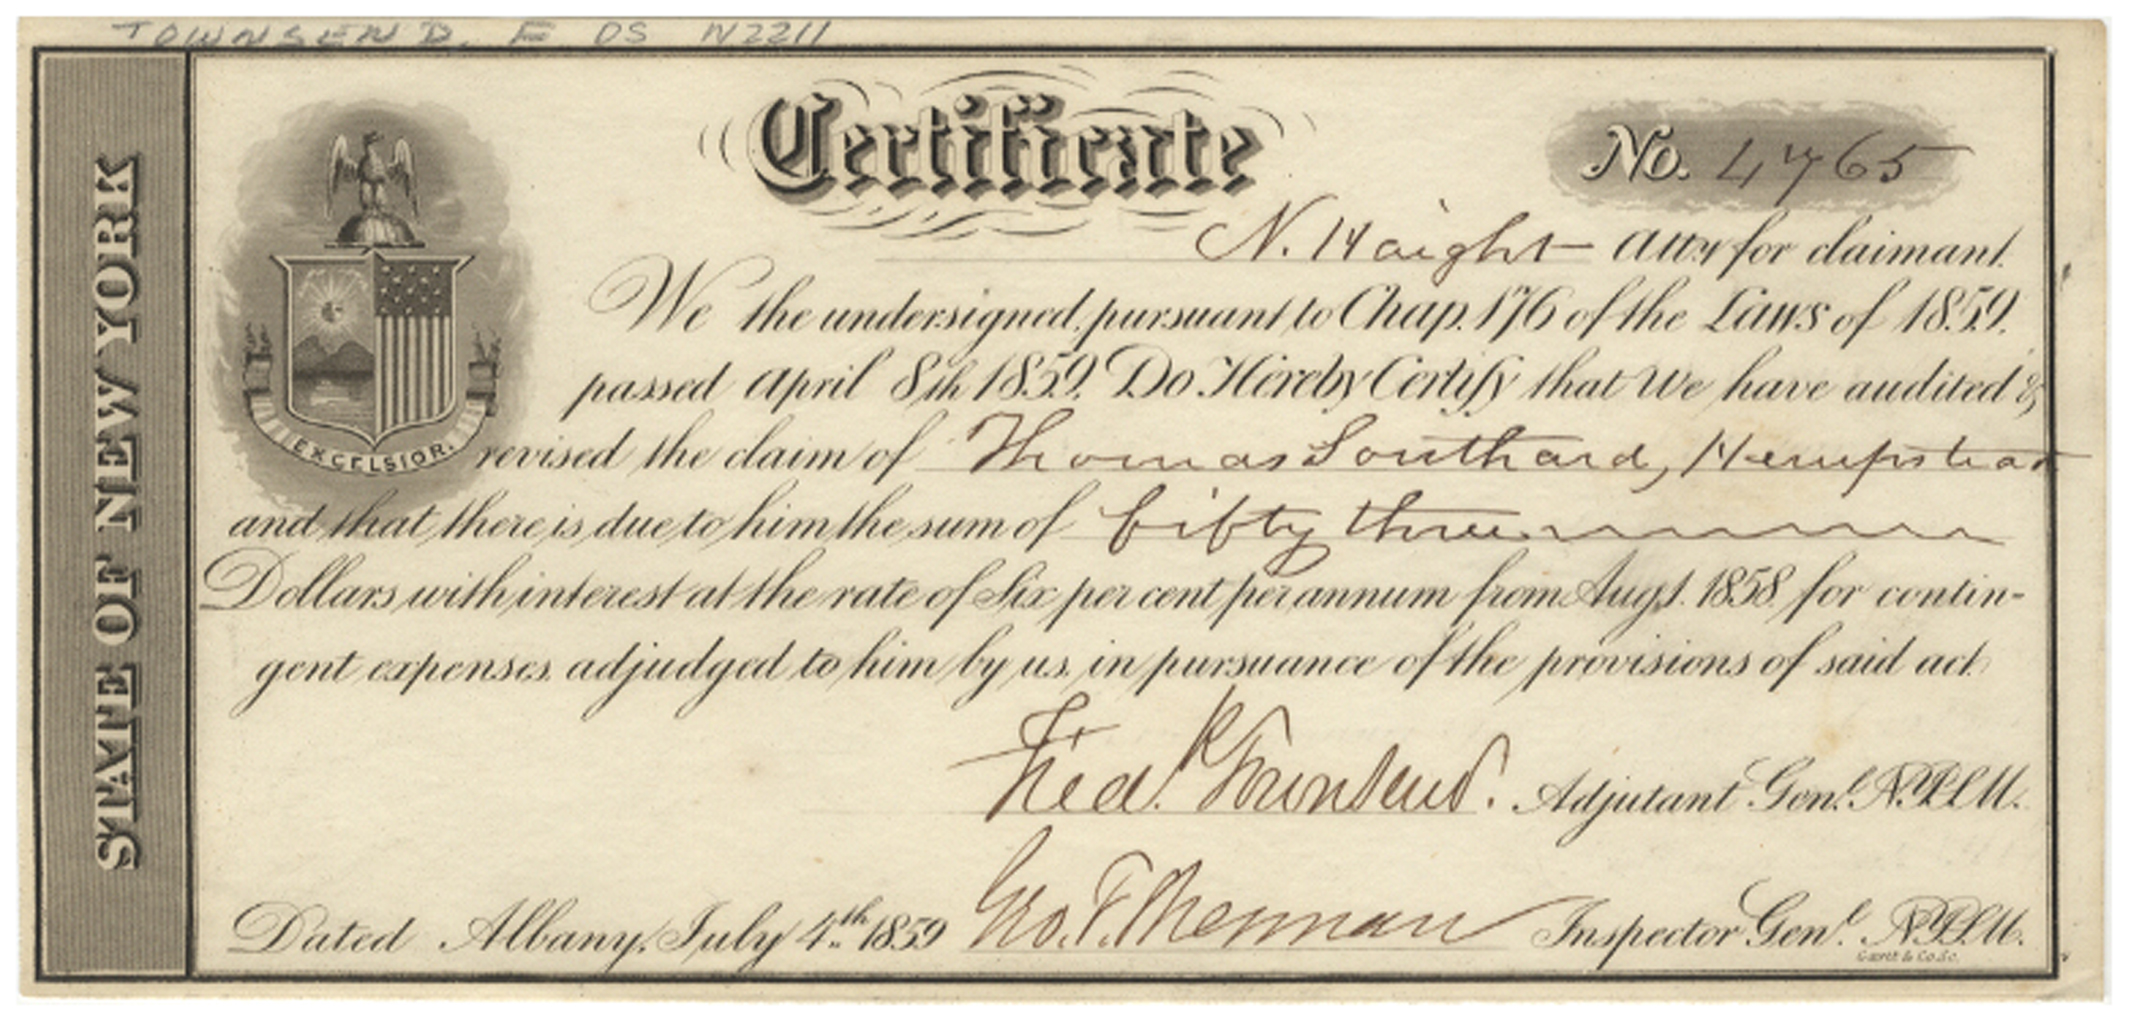 TOWNSEND. F DS N2211
STATE OF NEW YORK
Certificate
No. 4765
N. Haight Atty for claimant.
We the undersigned, pursuant to Chap. 176 of the Laws of 1859.
passed April 8th 1859. Do Hereby Certify that We have audited &
revised the claim of Thomas Southard, Hempstead
EXCELSIOR.
and that there is due to him the sum of fifty three
Dollars with interest at the rate of Six per cent per annum from Aug. 1. 1858 for contin-
gent expenses adjudged to him by us, in pursuance of the provisions of said act.
Fred. Townsend. Adjutant Genl. N.Y.S.M.
Dated Albany, July 4th 1859 Geo. F. Sherman Inspector Genl. N.Y.S.M.
Gavit & Co. Sc.